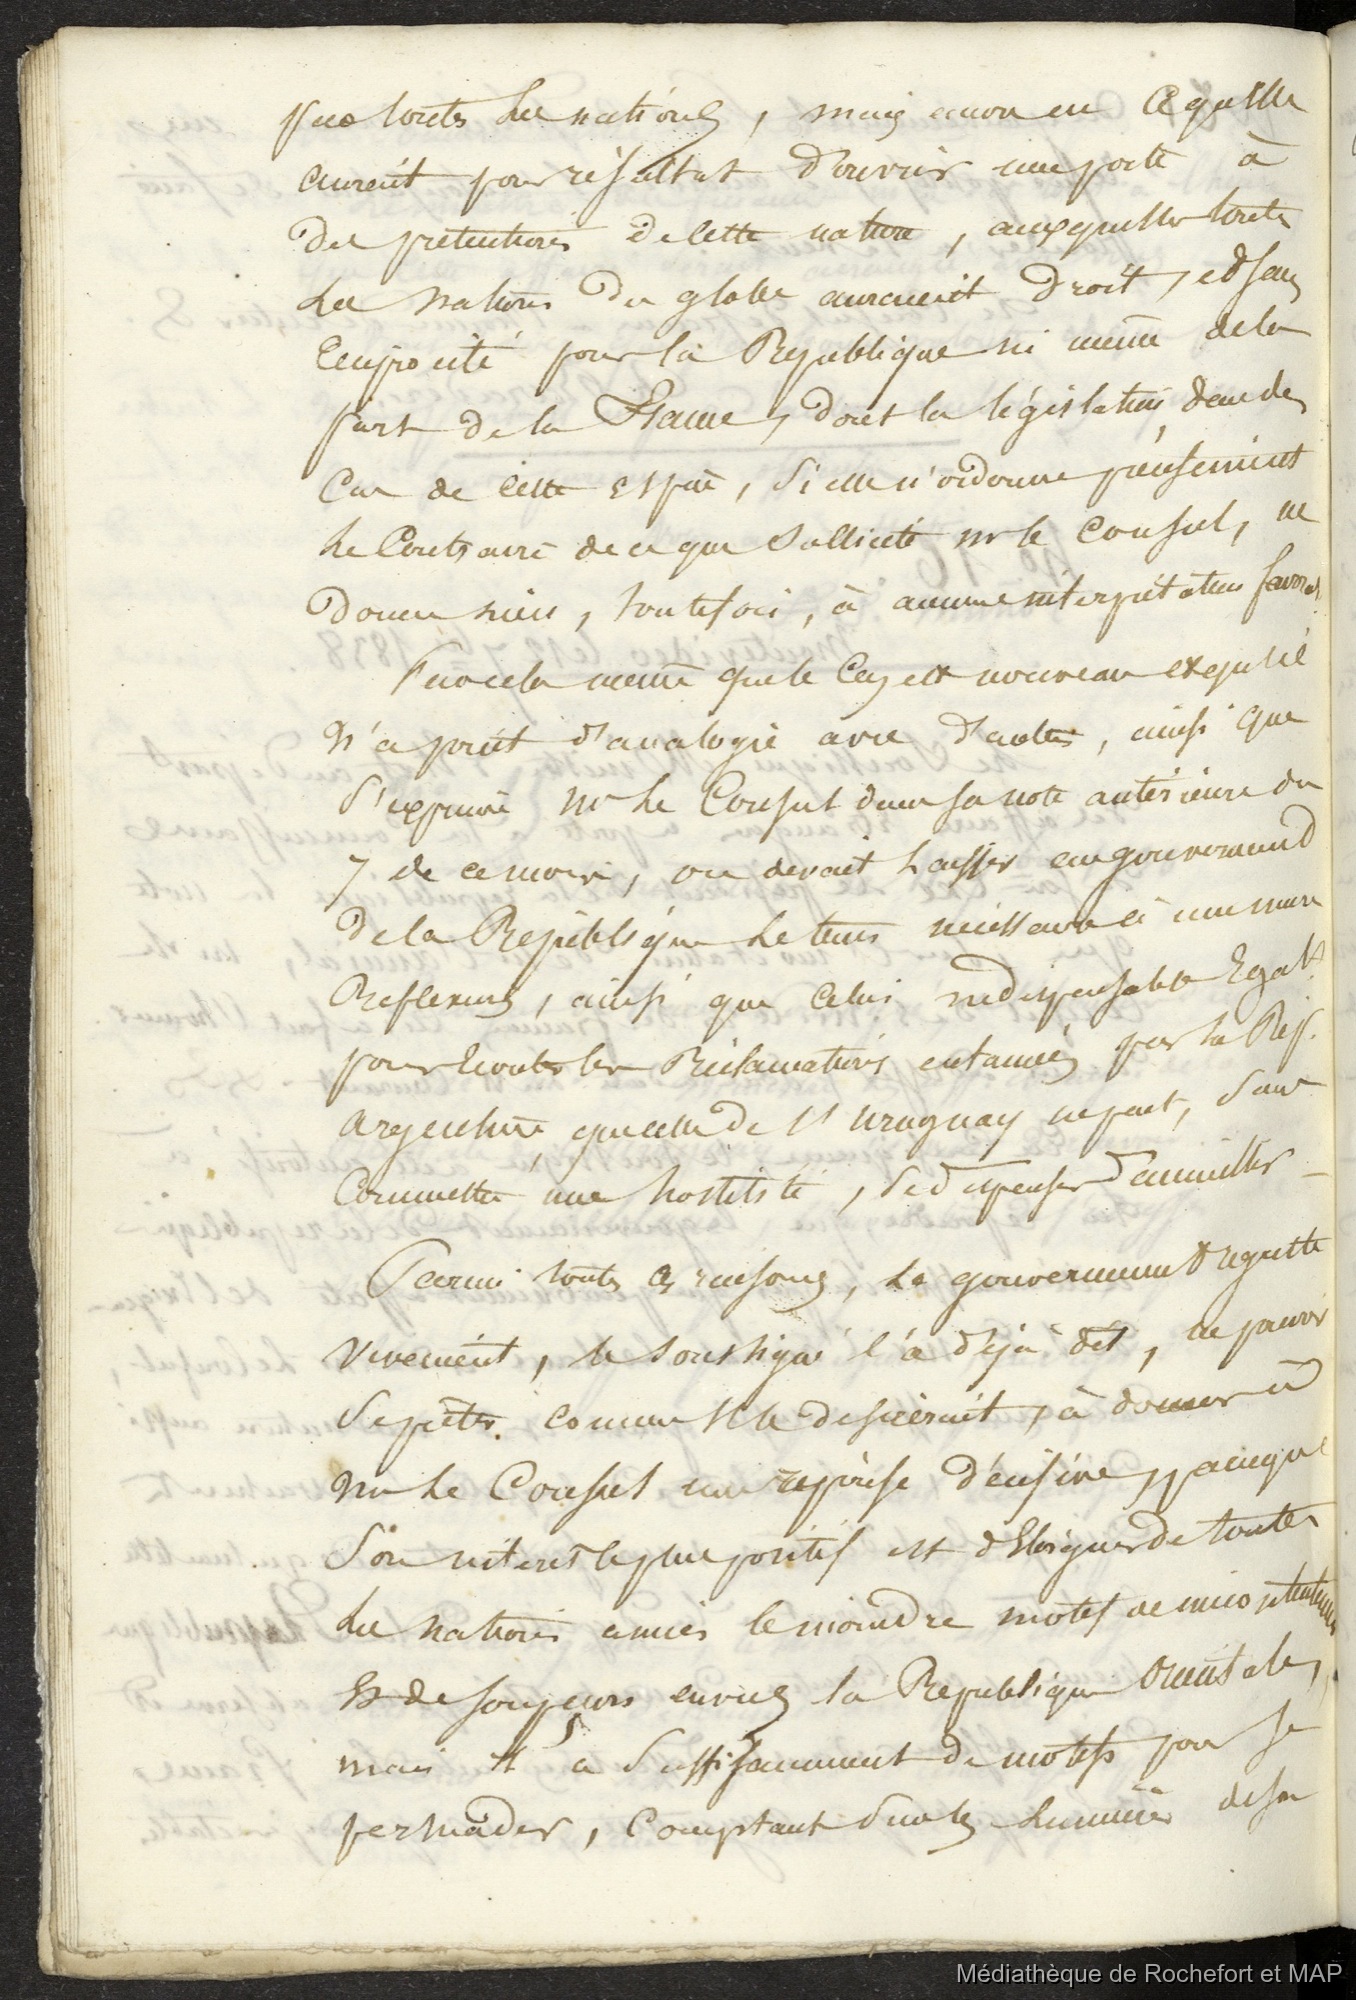 pas toutes les nations, mais encore en ce qu'elle
auroit pour résultat d'ouvrir une porte à
des pretentions de cette nature, auxquelles toutes
les nations du globe auraient droit, et sans
reciprocité pour la Republique ni même de la
part de la France, dont la législation, dans des
Cas de cette espèce, si elle n'ordonne précisément
le Contraire de ce que Sollicite mr le Consul, ne
donne rien, toutefois, à aucune interprétation favorab.
Par cela même que le Cas est nouveau et qu'il
N'a point d'analogie avec d'autres, ainsi que
S'exprime Mr le Consul dans sa note antérieure du
7 de ce mois, on devait laisser au gouvernement
de la République le tems nécessaire à une mure
Reflexion, ainsi que Celui indispensable Egalt
pour Ecouter les Réclamations entamées par la Rép.
Argentine, que celle de l'Uruguay ne peut, Sans
Commettre une hostilité, Se dispenser d'accueillir _
Parmi toutes ces raisons, le gouvernement regrette
vivement, le Soussigné l'a déjà dit, ne pouvoir
Se prêter, comme il le desirerait, à donner à
Mr le Consul une reponse décisive, parceque
Son interêt le plus positif est d'Eloigner de toutes
les nations amies le moindre motif de mécontentement
Et de soupçons envers la République Orientale,
mais il a Suffisamment de motifs pour se
persuader, Comptant Sur les lumières de son
Médiathèque de Rochefort et MAP